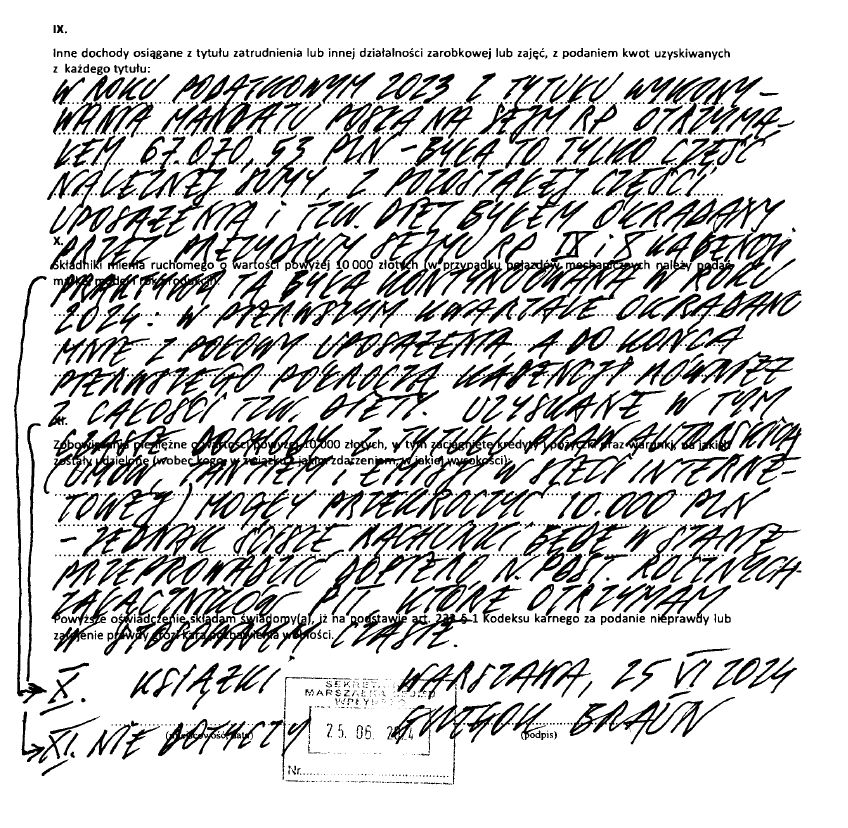 IX.
Inne dochody osiągane z tytułu zatrudnienia lub innej działalności zarobkowej lub zajęć, z podaniem kwot uzyskiwanych
z każdego tytułu:
W ROKU PODATKOWYM 2023 Z TYTUŁU WYKONY-
WANIA MANDATU POSŁA NA SEJM RP OTRZYMA-
ŁEM 67.070,53 PLN - BYŁA TO TYLKO CZĘŚĆ
NALEŻNEJ SUMY, Z POZOSTAŁEJ CZĘŚCI
UPOSAŻENIA i TZW. DIET BYŁEM OKRADANY
X.
PRZEZ PREZYDIUM SEJMU RP IX i X KADENCJI.
Składniki mienia ruchomego o wartości powyżej 10 000 złotych (w przypadku pojazdów mechanicznych należy podać
markę, model i rok produkcji):
PRAKTYKA TA BYŁA KONTYNUOWANA W ROKU
2024: W PIERWSZYM KWARTALE OKRADANO
MNIE Z POŁOWY UPOSAŻENIA, A DO KOŃCA
PIERWSZEGO PÓŁROCZA KADENCJI RÓWNIEŻ
Z CAŁOŚCI TZW. DIETY. UZYSKANE W TYM
XI.
CZASIE DOCHODY Z TYTUŁU PRAW AUTORSKICH
Zobowiązania pieniężne o wartości powyżej 10 000 złotych, w tym zaciągnięte kredyty i pożyczki oraz warunki, na jakich
zostały udzielone (wobec kogo, w związku z jakim zdarzeniem, w jakiej wysokości):
(UMÓW, TANTIEM, EMISJI W SIECI INTERNE-
TOWEJ) MOGŁY PRZEKROCZYĆ 10.000 PLN
- JEDNAK ŚCISŁE RACHUNKI BĘDĘ W STANIE
PRZEPROWADZIĆ DOPIERO N. PODST. ROCZNYCH
ZAŁĄCZNIKÓW PIT KTÓRE OTRZYMAM
Powyższe oświadczenie składam świadomy(a), iż na podstawie art. 233 § 1 Kodeksu karnego za podanie nieprawdy lub
zatajenie prawdy grozi kara pozbawienia wolności.
W STOSOWNYM CZASIE.
X. KSIĄŻKI WARSZAWA, 25 VI 2024
SEKRET
MARSZAŁKA SEJMU
WPŁYNĘŁO
XI. NIE DOTYCZY 25. 06. 2024 BRAUN
(miejscowość, data) (podpis)
Nr